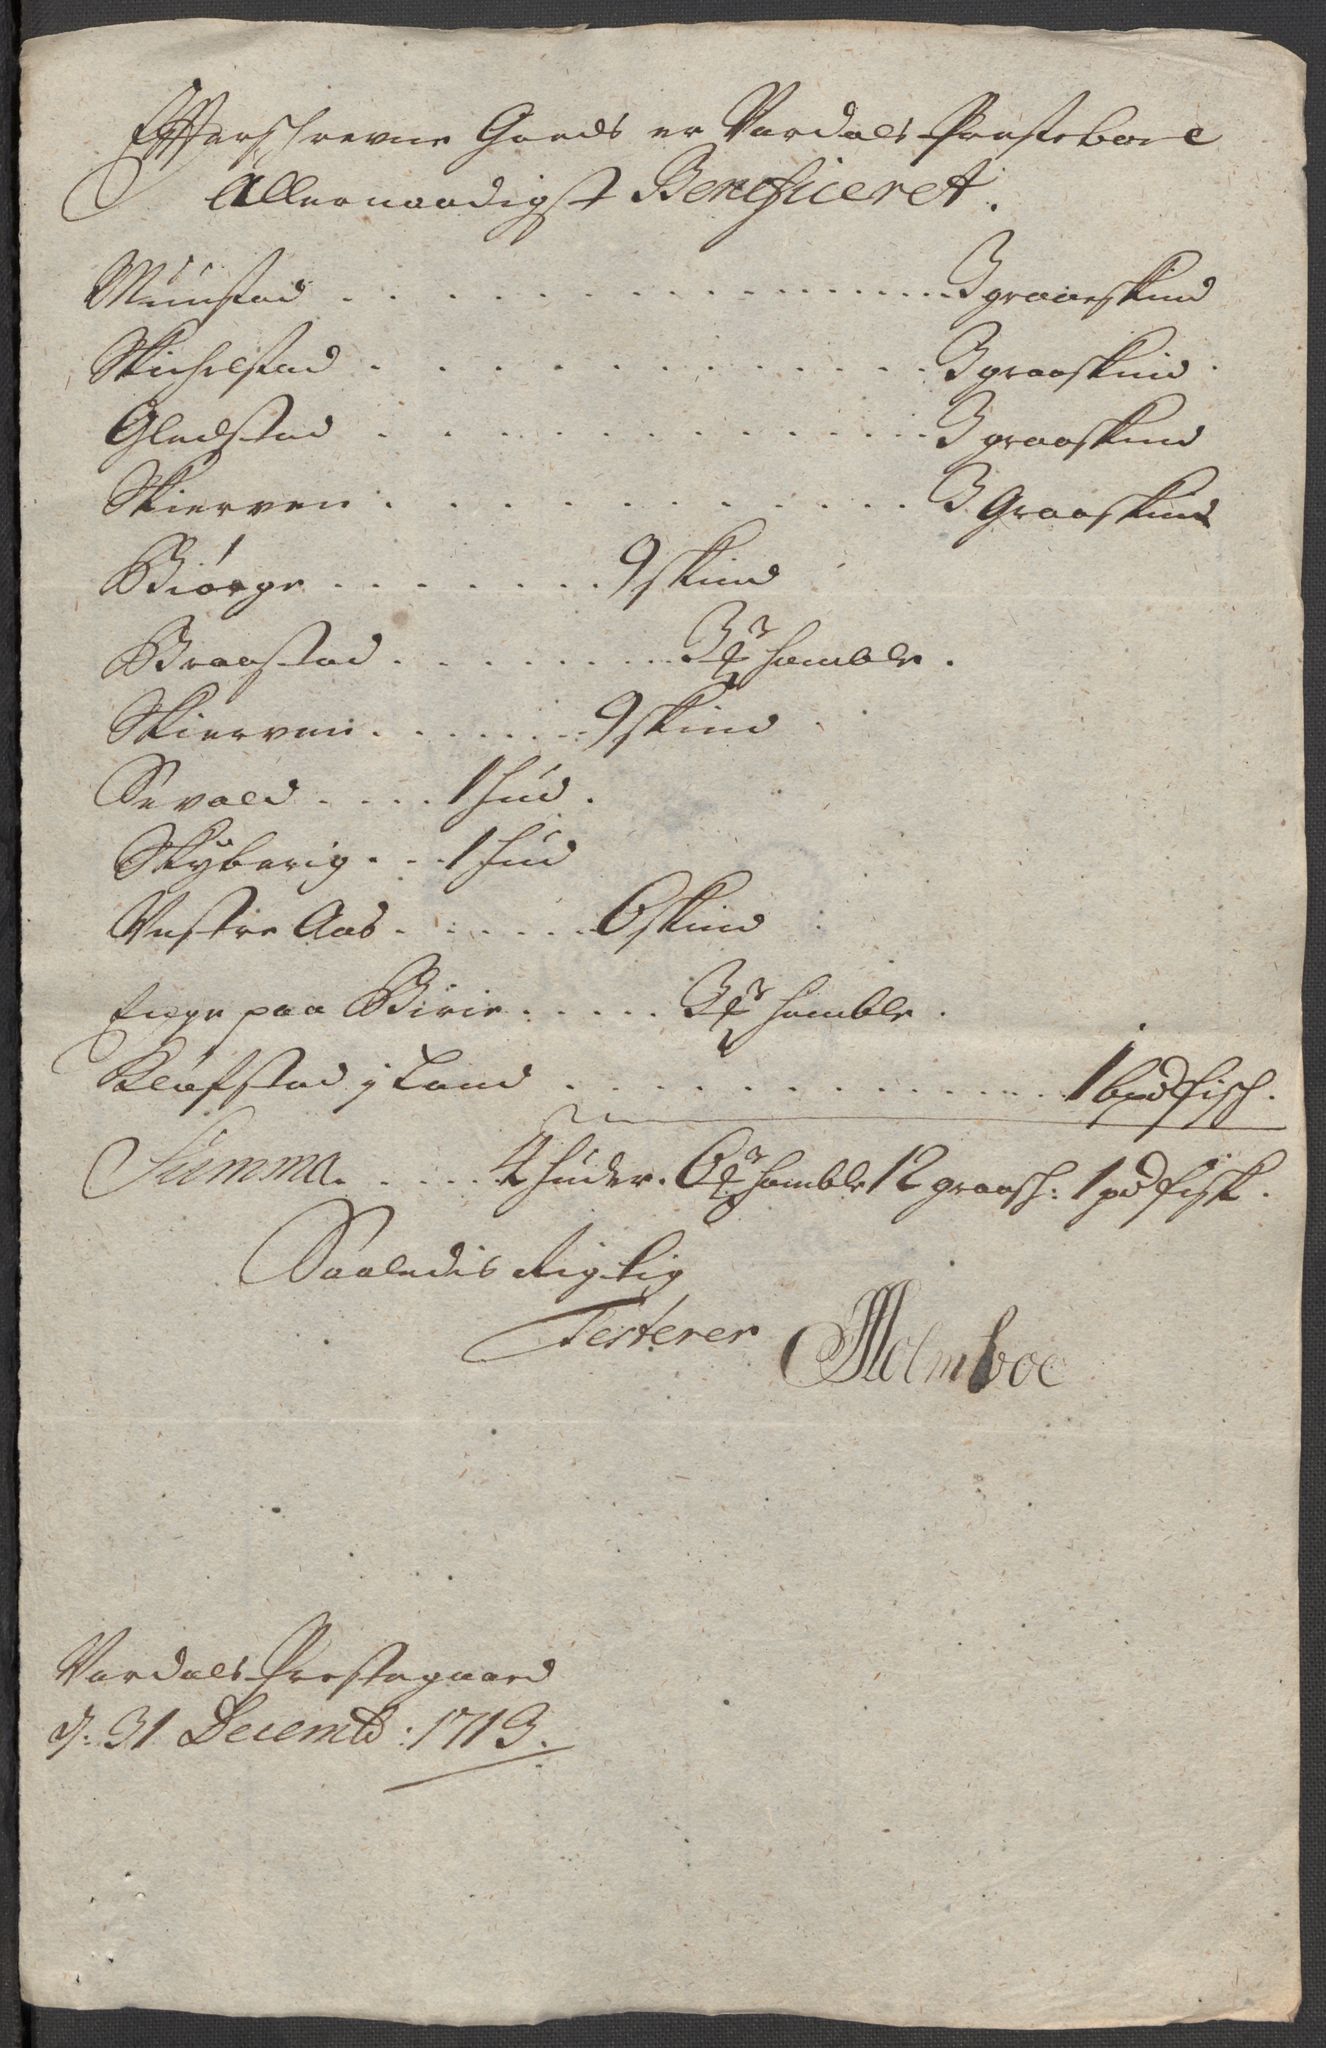 Effterschrevne Goeds er Vardals Præsteboel
Allernaadigst Beneficeret.
Muustad . . . . . . . . . . . . . . . . . 3 graaeskind
Skichelstad . . . . . . . . . . . . . . 3 graaskind.
Gledstad . . . . . . . . . . . . . . 3 graaskind
Skierven . . . . . . . . . . . . . . 3 Graaskind
Biørge . . . . . . . . 9 skind
Braastad . . . . . . . . . 3 hamble.
Skierven . . . . . . . 9 skind
Sevald . . . . 1 hud.
Skyberig . . . 1 hud
Vestre Aas . . . . . . 6 skind
Enge paa Birie . . . . . 3 hamble.
Kløfstad j Land . . . . . . . . . . . . . 1 bpd fisch.
Summa . . . . . 4 huder. 6 hamble 12 graash: 1 pd fisk.
Saaledis Rigtig
Testerer Holmboe
Vardals Prestegaard
d: 31 Decembr: 1713.